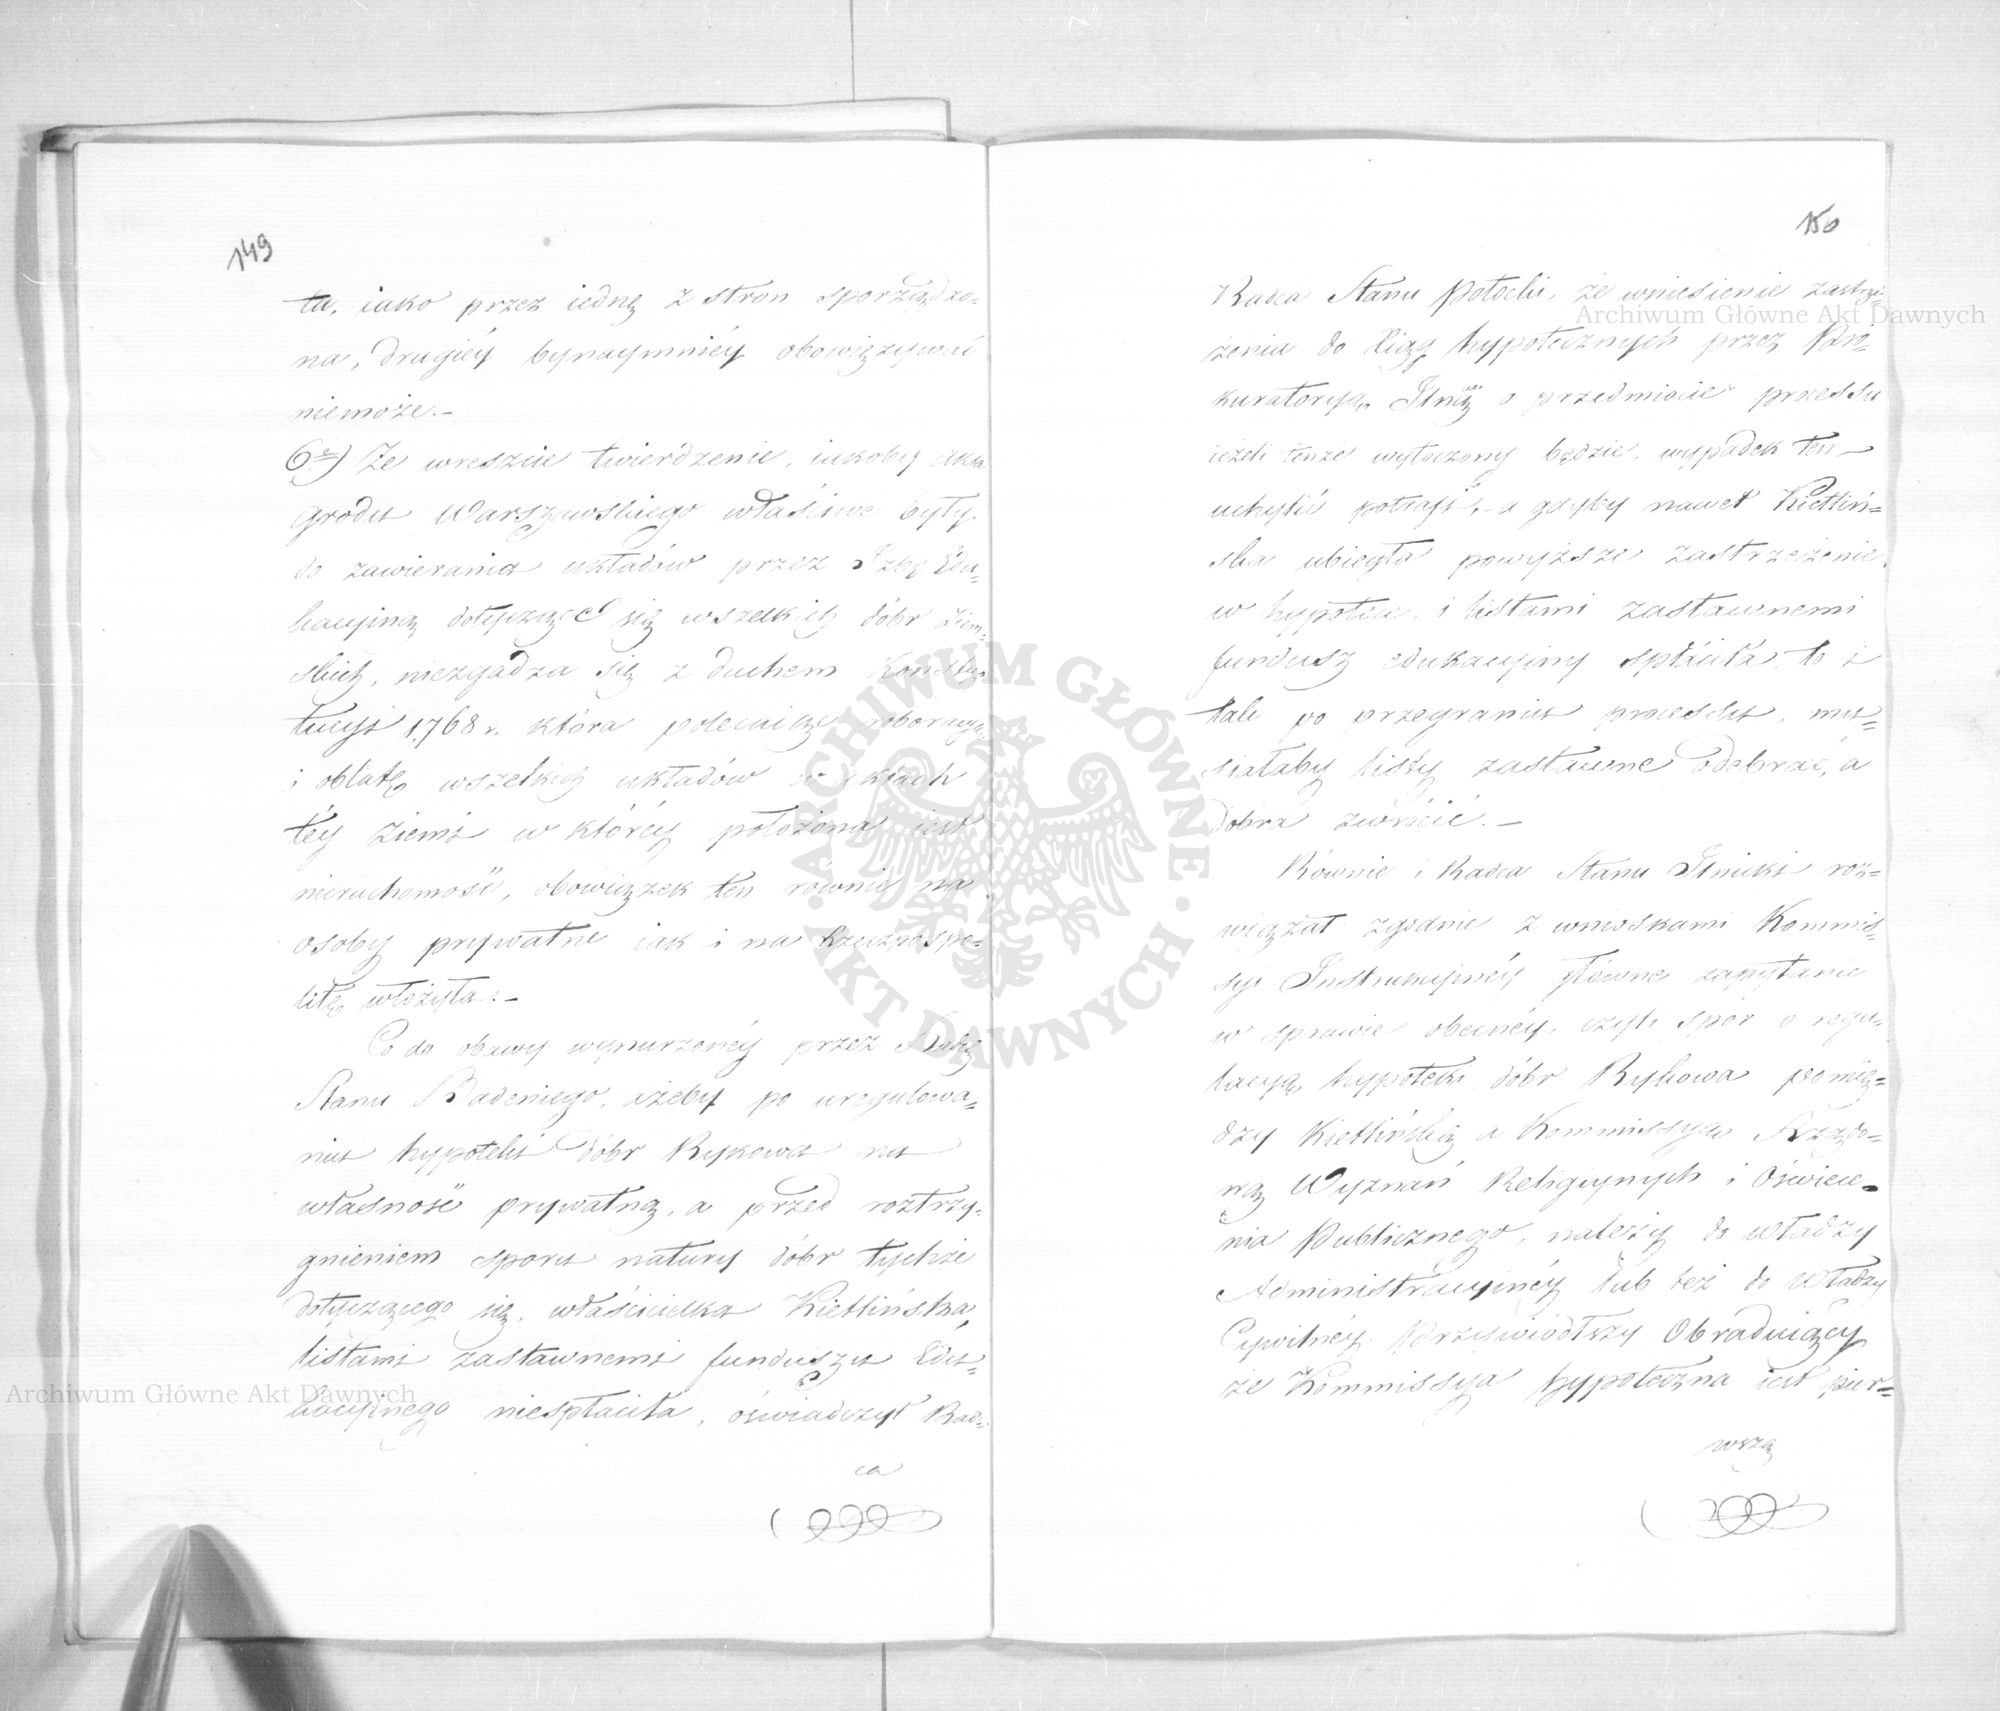 149
ta, iako przez iednę z stron sporządzo-
na, drugiéy bynaymniéy obowięzywać
niemoże.-
6te) Że wreszcie twierdzenie, iakoby akta
grodu Warszawskiego właściwe były
do zawierania układów przez Izbę Edu-
kacyjną dotyczące się wszelkich dóbr ziem-
skich, niezgadza się z duchem Konsty-
tucyi 1768 r. która polecaiąc roboracyą,
i oblatę wszelkich układów w aktach
téy Ziemi w któréy położona iest
nieruchomość, obowiązek ten równie na
osoby prywatne iak i na Rzeczpospo-
litę włożyła.-
Co do obawy wynurzonéy przez Radcę
Stanu Badeniego, ażeby po uregulowa-
niu hypoteki dóbr Rykowa na
własność prywatną, a przed roztrzy-
gnieniem sporu natury dóbr tychże
dotyczącego się, właścicielka Kietlińska,
listami zastawnemi funduszu Edu-
kacyjnego niespłaciła, oświadczył Rad-
ca
150
Radca Stanu Potocki, że wniesienie zastrze-
żenia do Xiąg hypotecznych przez Pro-
kuratoryą Jlną o przedmiocie processu
ieżeli tenże wytoczony będzie, wypadek ten
uchylić potrafi,- a gdyby nawet Kietliń-
ska ubiegła powyższe zastrzeżenie
w hypotece, i listami zastawnemi
fundusz edukacyjny spłaciła, to i
tak po przegraniu processu, mu-
siałaby listy zastawne odebrać, a
dobra zwrócić.-
Równie i Radca Stanu Jlnicki roz-
wiązał zgodnie z wnioskami Kommis-
syi Instrukcyjnéy główne zapytanie
w sprawie obecnéy, czyli spór o regu-
lacyą hypoteki dóbr Rykowa pomię-
dzy Kietlińską a Kommissyą Rządo-
wą Wyznań Religijnych i Oświece-
nia Publicznego, należy do władzy
Administracyjnéy lub też do Władzy
Cywilnéy. Przywiódłszy Obraduiący
że Kommissya hypoteczna iest pier-
wszą
Archiwum Główne Akt Dawnych
Archiwum Główne Akt Dawnych
ARCHIWUM GŁÓWNE · AKT DAWNYCH ·